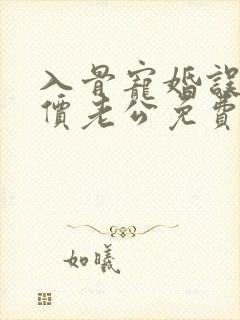 入骨寵婚誤
價老公免費
如曦